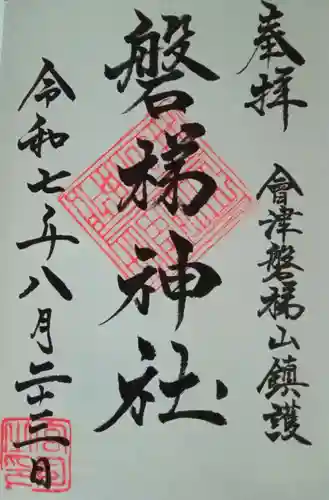 奉拝
會津磐梯山鎮護
磐梯神社
令和七年八月二十三日